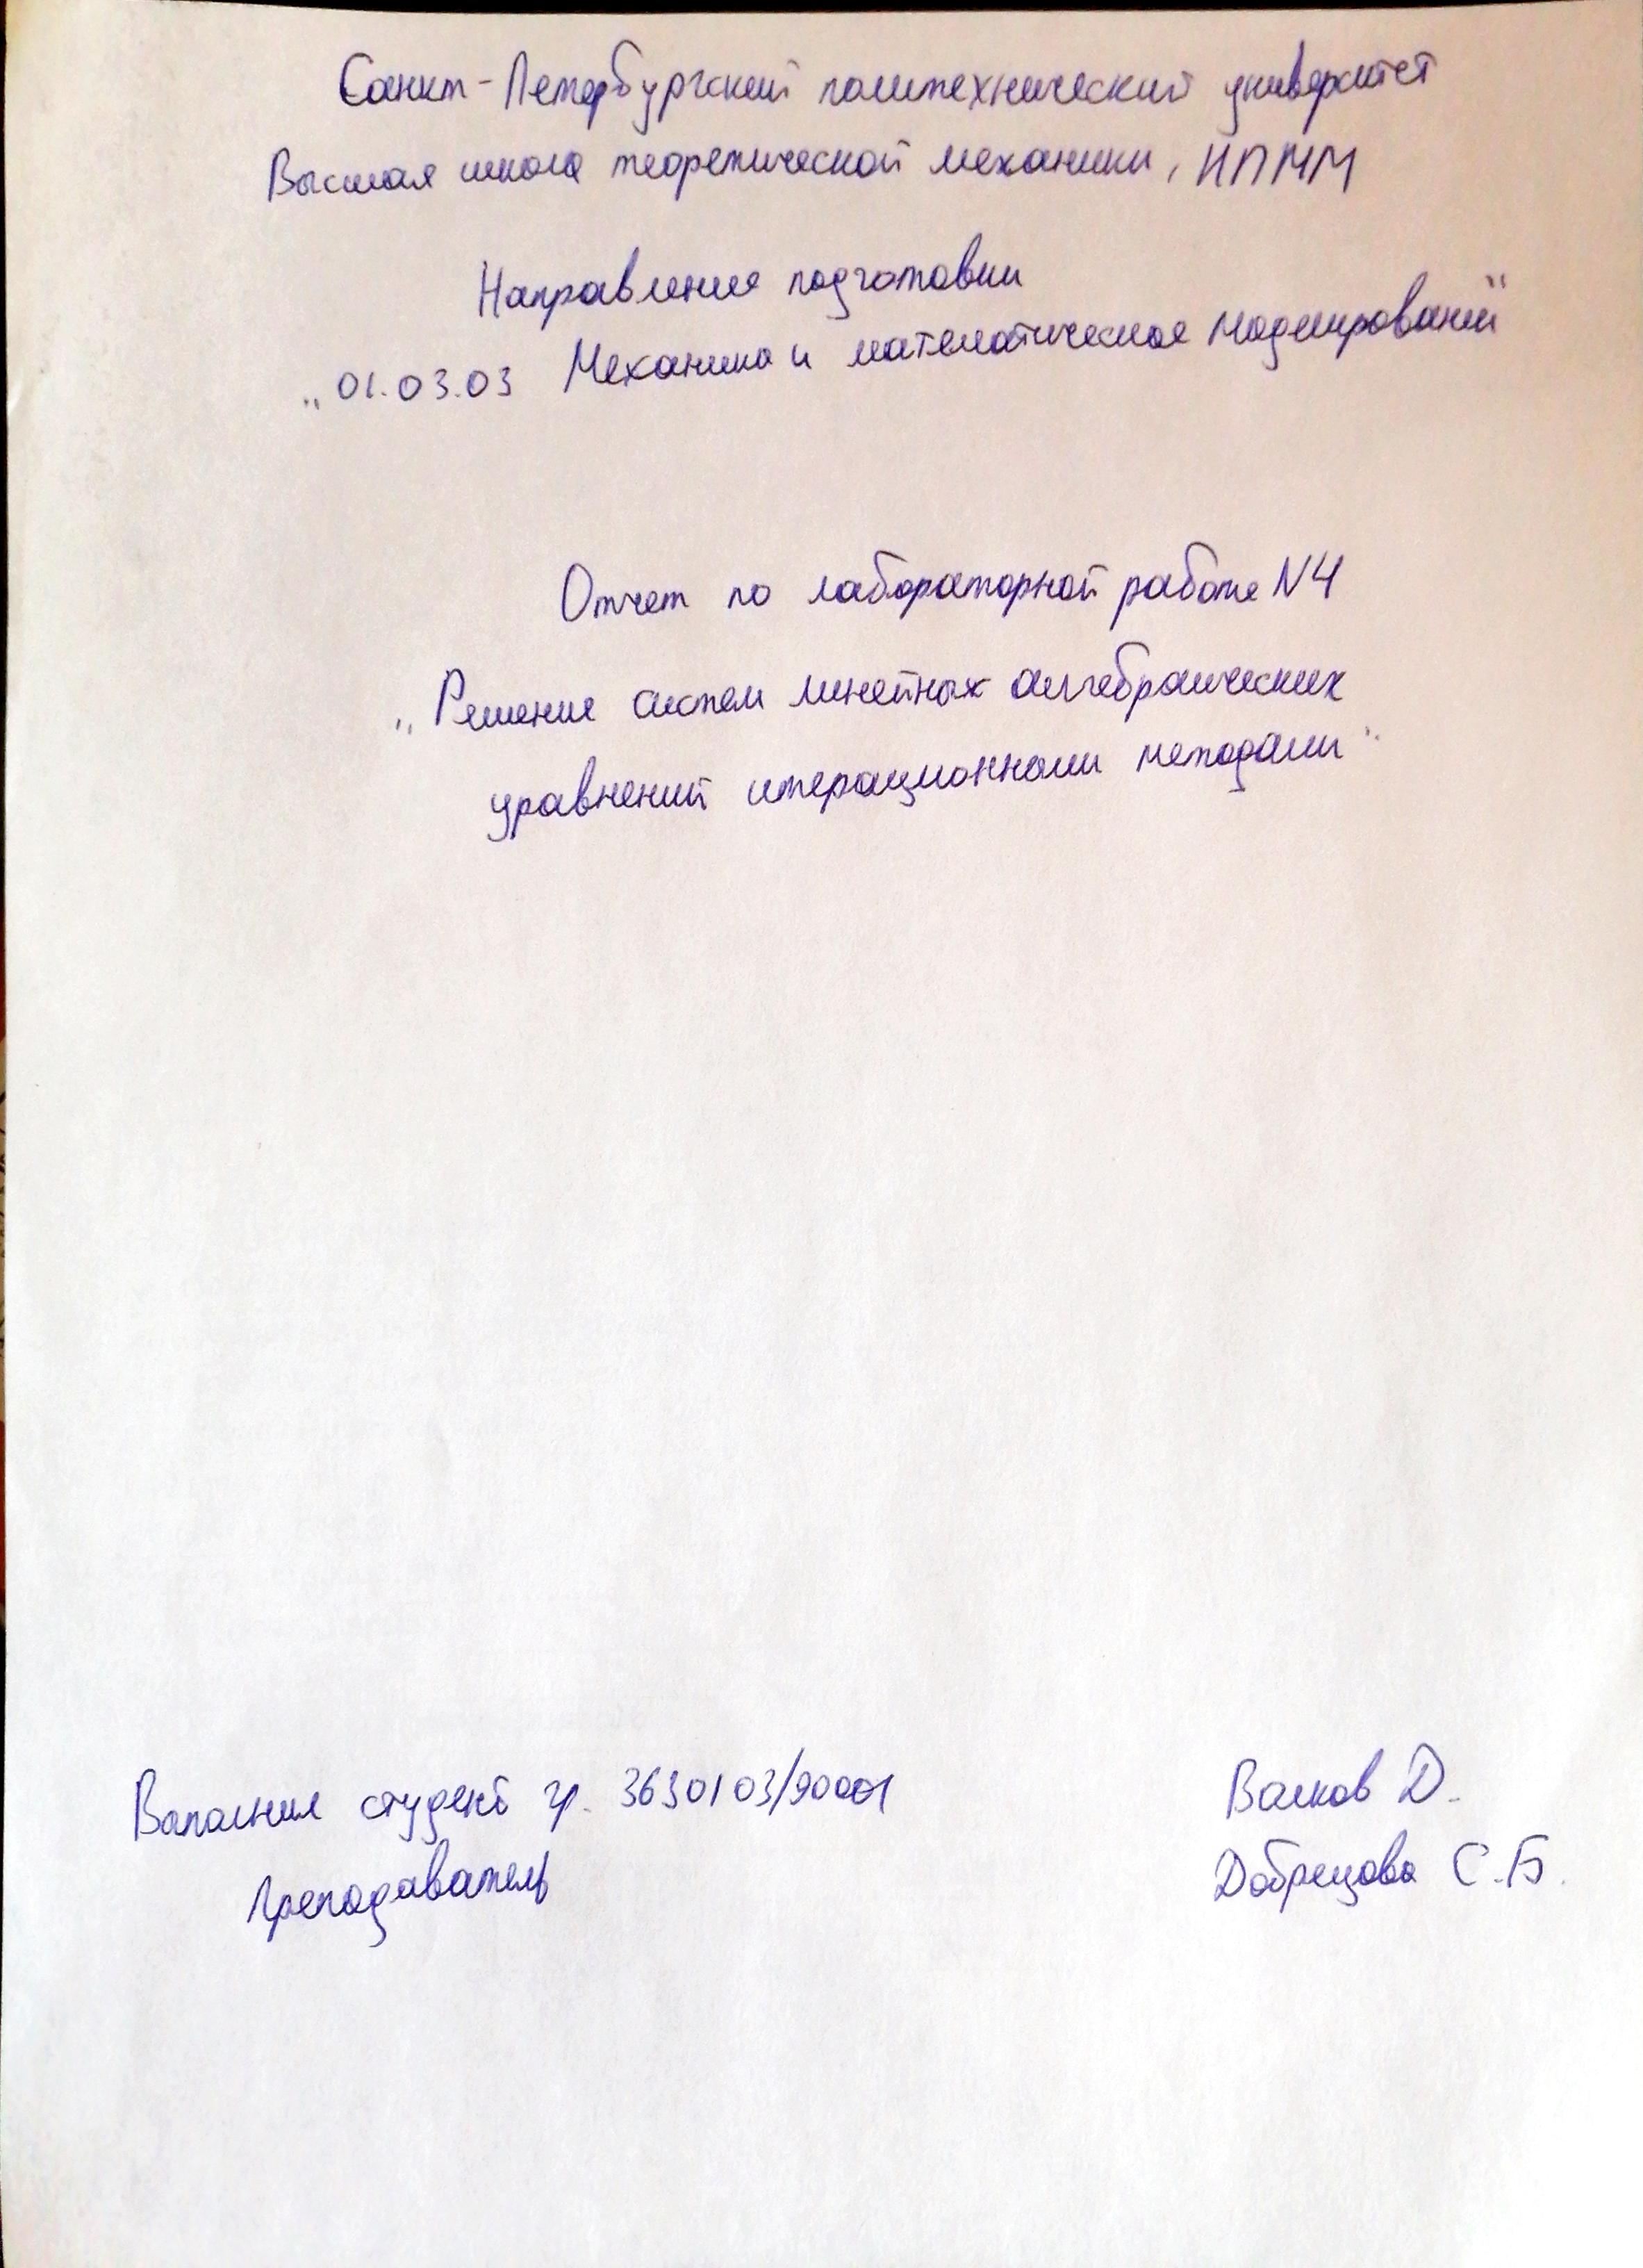 Санкт-Петербургский политехнический университет
Высшая школа теоретической механики, ИПММ
Направление подготовки
„01.03.03 Механика и математическое моделирование"
Отчет по лабораторной работе N4
„Решение систем линейных алгебраических
уравнений итерационными методами"
Выполнил студент гр. 3630103/90001 Волков Д.
Преподаватель Добрецова С.Б.